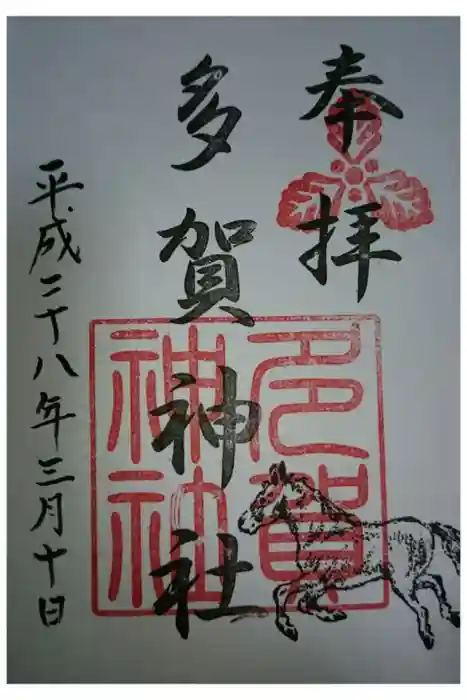 奉拝
多賀神社
多賀
神社
平成二十八年三月十日